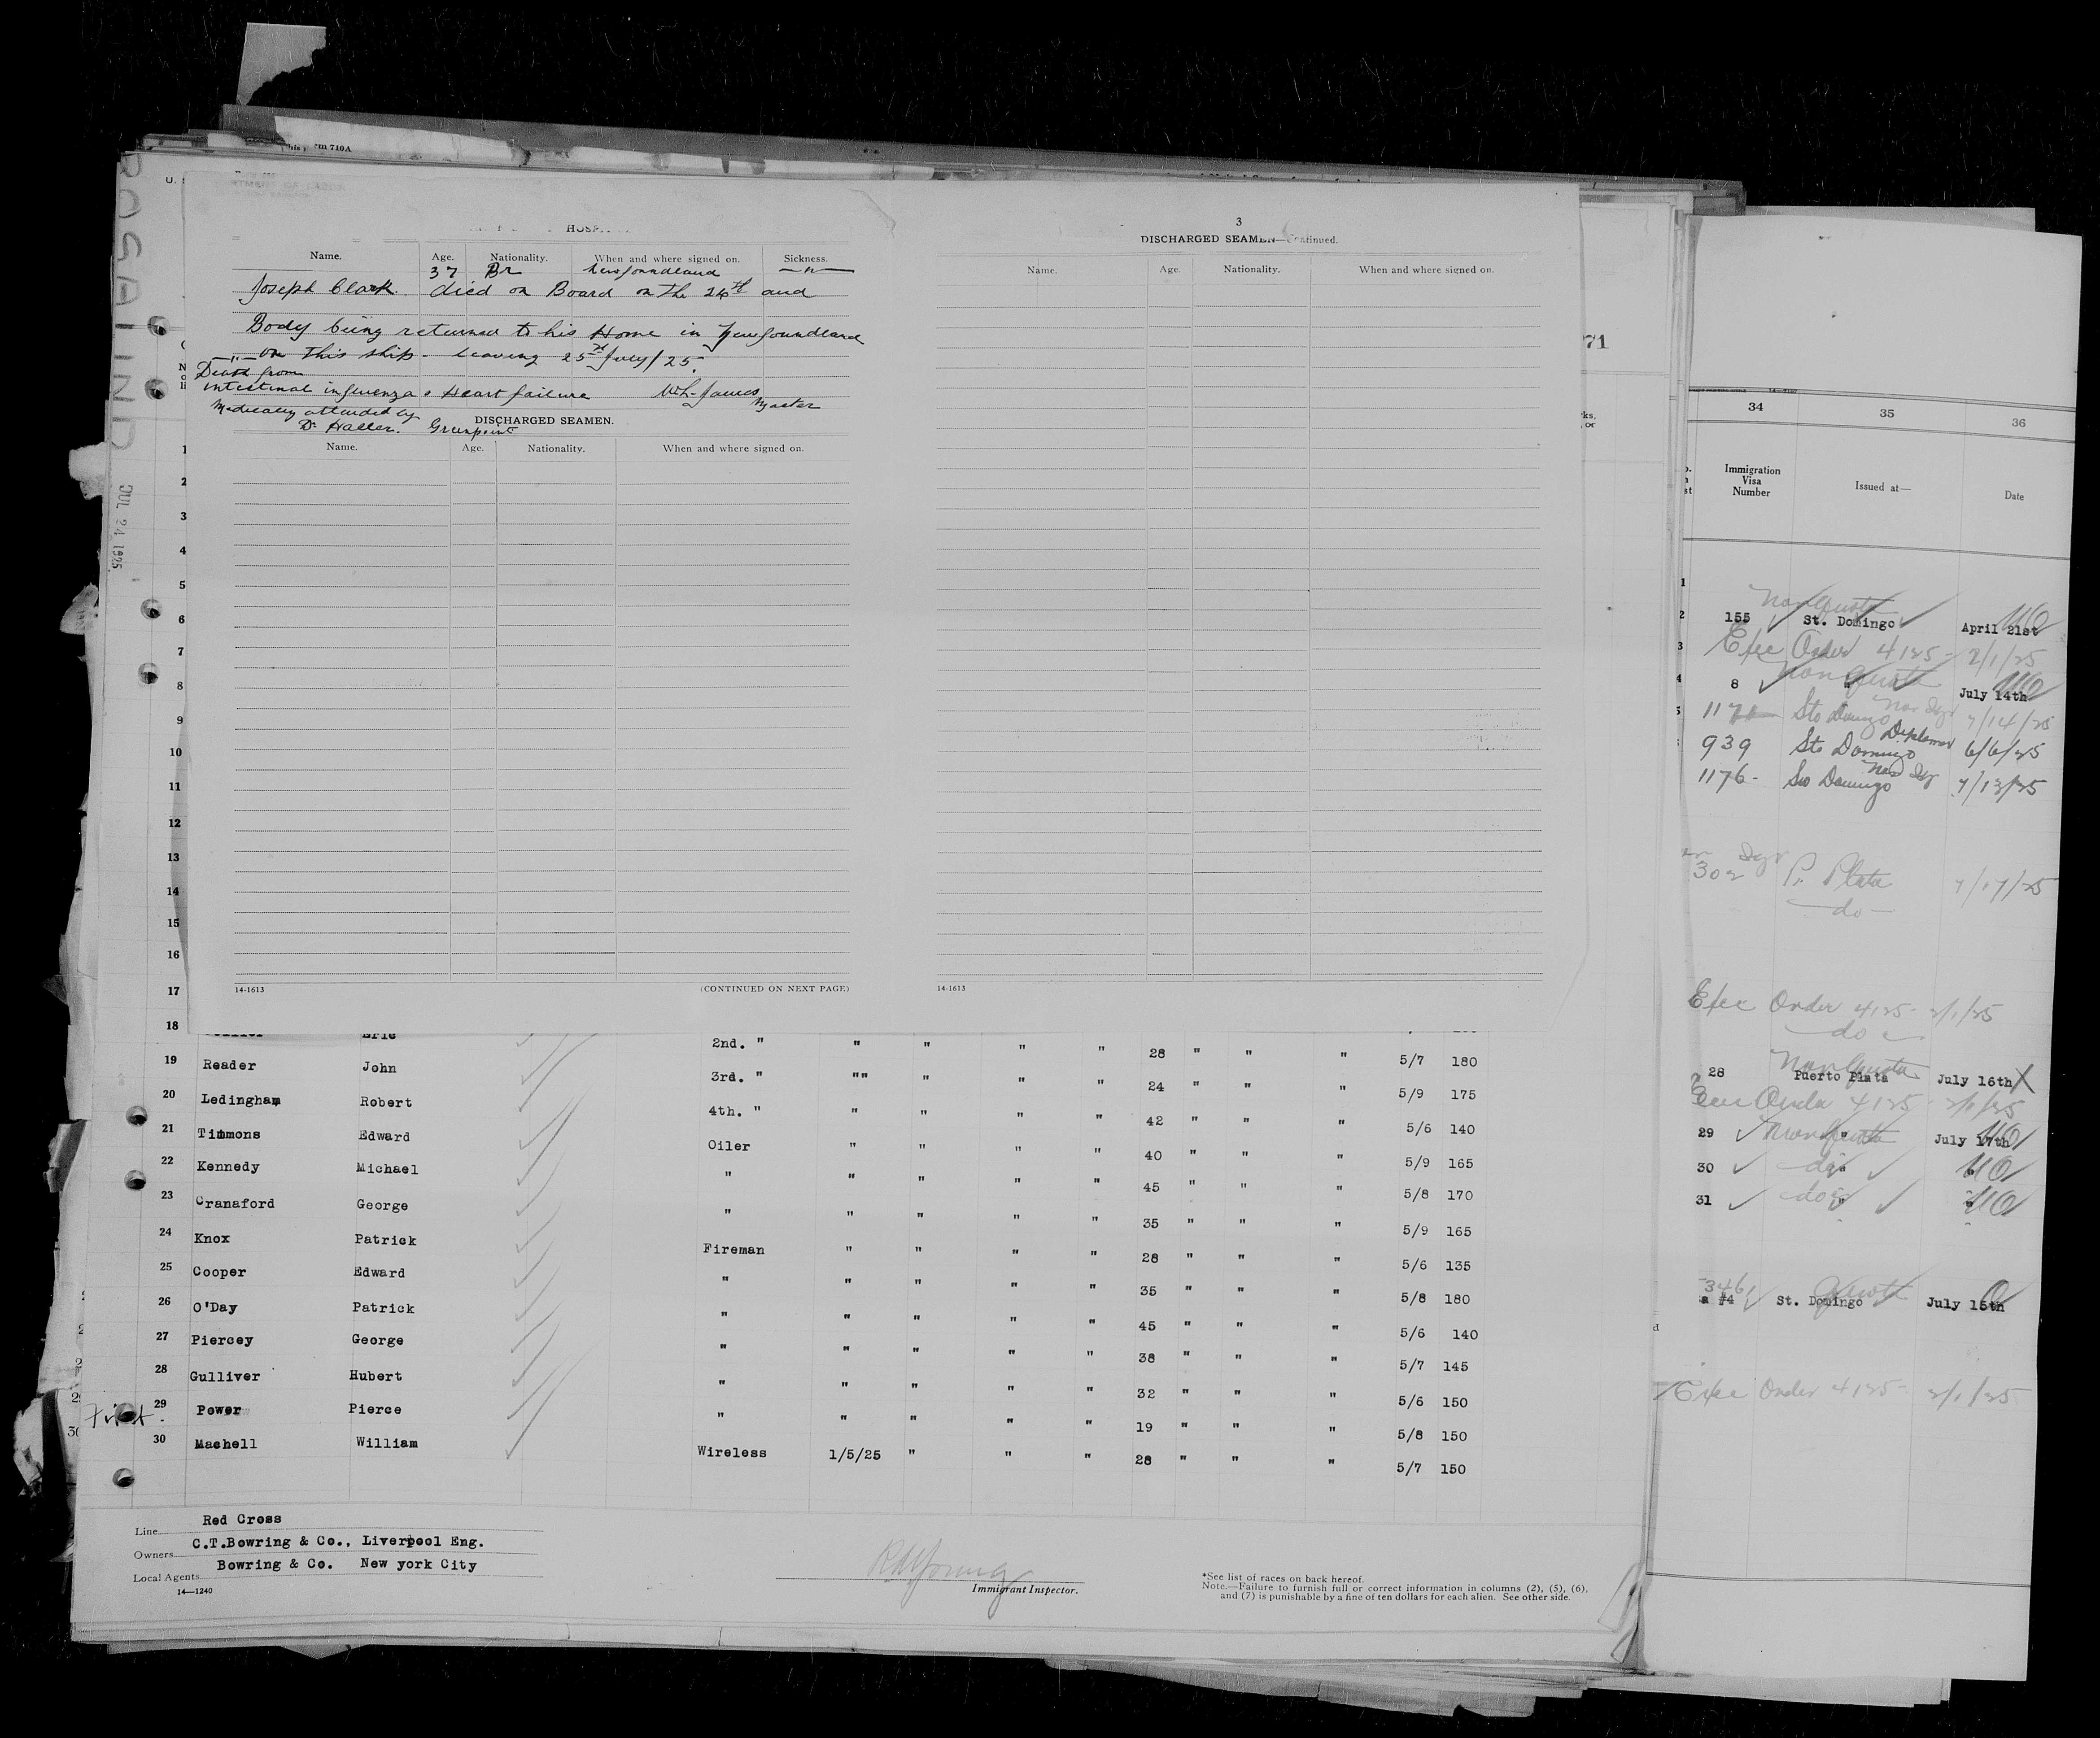 Form 710A
ROSALIND
JUL 24 1925
HOSPI
Name. Age. Nationality. When and where signed on. Sickness.
37 Br Newfoundland —"—
Joseph Clark. died on Board on the 24th and
Body being returned to his Home in Newfoundland
—"— on this ship - leaving 25th July/25.
Death from
intestinal influenza & Heart failure W.L. James Master
Medically attended by
Dr Haller. Greenpoint
DISCHARGED SEAMEN.
Name. Age. Nationality. When and where signed on.
14-1613 (CONTINUED ON NEXT PAGE)
3
DISCHARGED SEAMEN—Continued.
Name. Age. Nationality. When and where signed on.
14-1613
1
2
3
4
5
6
7
8
9
10
11
12
13
14
15
16
17
18 Eric 2nd. " " " " " 28 " " " 5/7 180
19 Reader John 3rd. " "" " " " 24 " " " 5/9 175
20 Ledingham Robert 4th. " " " " " 42 " " " 5/6 140
21 Timmons Edward Oiler " " " " 40 " " " 5/9 165
22 Kennedy Michael " " " " " 45 " " " 5/8 170
23 Cranaford George " " " " " 35 " " " 5/9 165
24 Knox Patrick Fireman " " " " 28 " " " 5/6 135
25 Cooper Edward " " " " " 35 " " " 5/8 180
26 O'Day Patrick " " " " " 45 " " " 5/6 140
27 Piercey George " " " " " 38 " " " 5/7 145
28 Gulliver Hubert " " " " " 32 " " " 5/6 150
29 Power Pierce " " " " " 19 " " " 5/8 150
30 Machell William Wireless 1/5/25 " " " 28 " " " 5/7 150
Line Red Cross
Owners C.T.Bowring & Co., Liverpool Eng.
Local Agents Bowring & Co. New york City
14—1240
Immigrant Inspector.
*See list of races on back hereof.
Note.—Failure to furnish full or correct information in columns (2), (5), (6),
and (7) is punishable by a fine of ten dollars for each alien. See other side.
71
34 35 36
Immigration Visa Number Issued at— Date
Non Quota
155 St. Domingo April 21st
Exec Order 4125- 2/1/25
Non Quota
8 " July 14th
1171 Sto Domingo 7/14/25
939 Sto Domingo Diplomat 6/6/25
1176- Sto Domingo 7/13/25
302 P. Plata 7/17/25
—do—
Exec Order 4125- 2/1/25
do
Non Quota
28 Puerto Plata July 16th X
Exec Order 4125 - 2/1/25
29 Non Quota July 17th
30 do "
31 do "
346
a #4 St. Domingo Quota July 15th
Exec Order 4125- 2/1/25